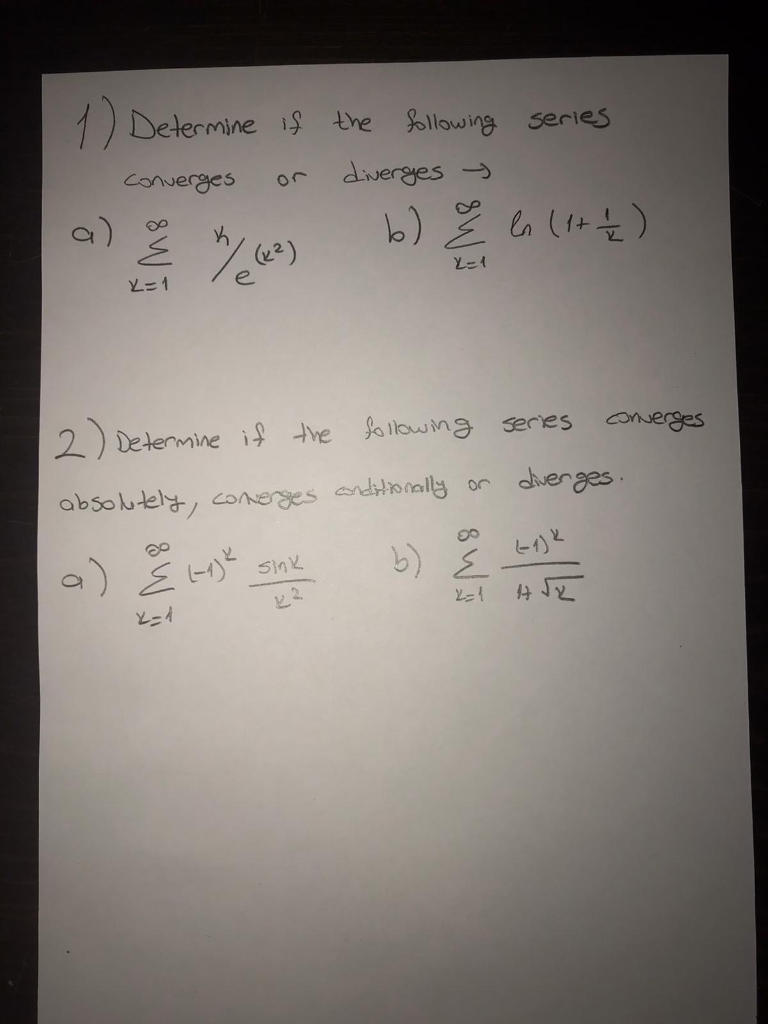 1) Determine if the following series
converges or diverges →
a) ∞ Σ k=1 k/e^(k²) b) ∞ Σ k=1 ln (1+ 1/k)
2) Determine if the following series converges
absolutely, converges conditionally or diverges.
a) ∞ Σ k=1 (-1)^k sink/k² b) ∞ Σ k=1 (-1)^k/1+√k